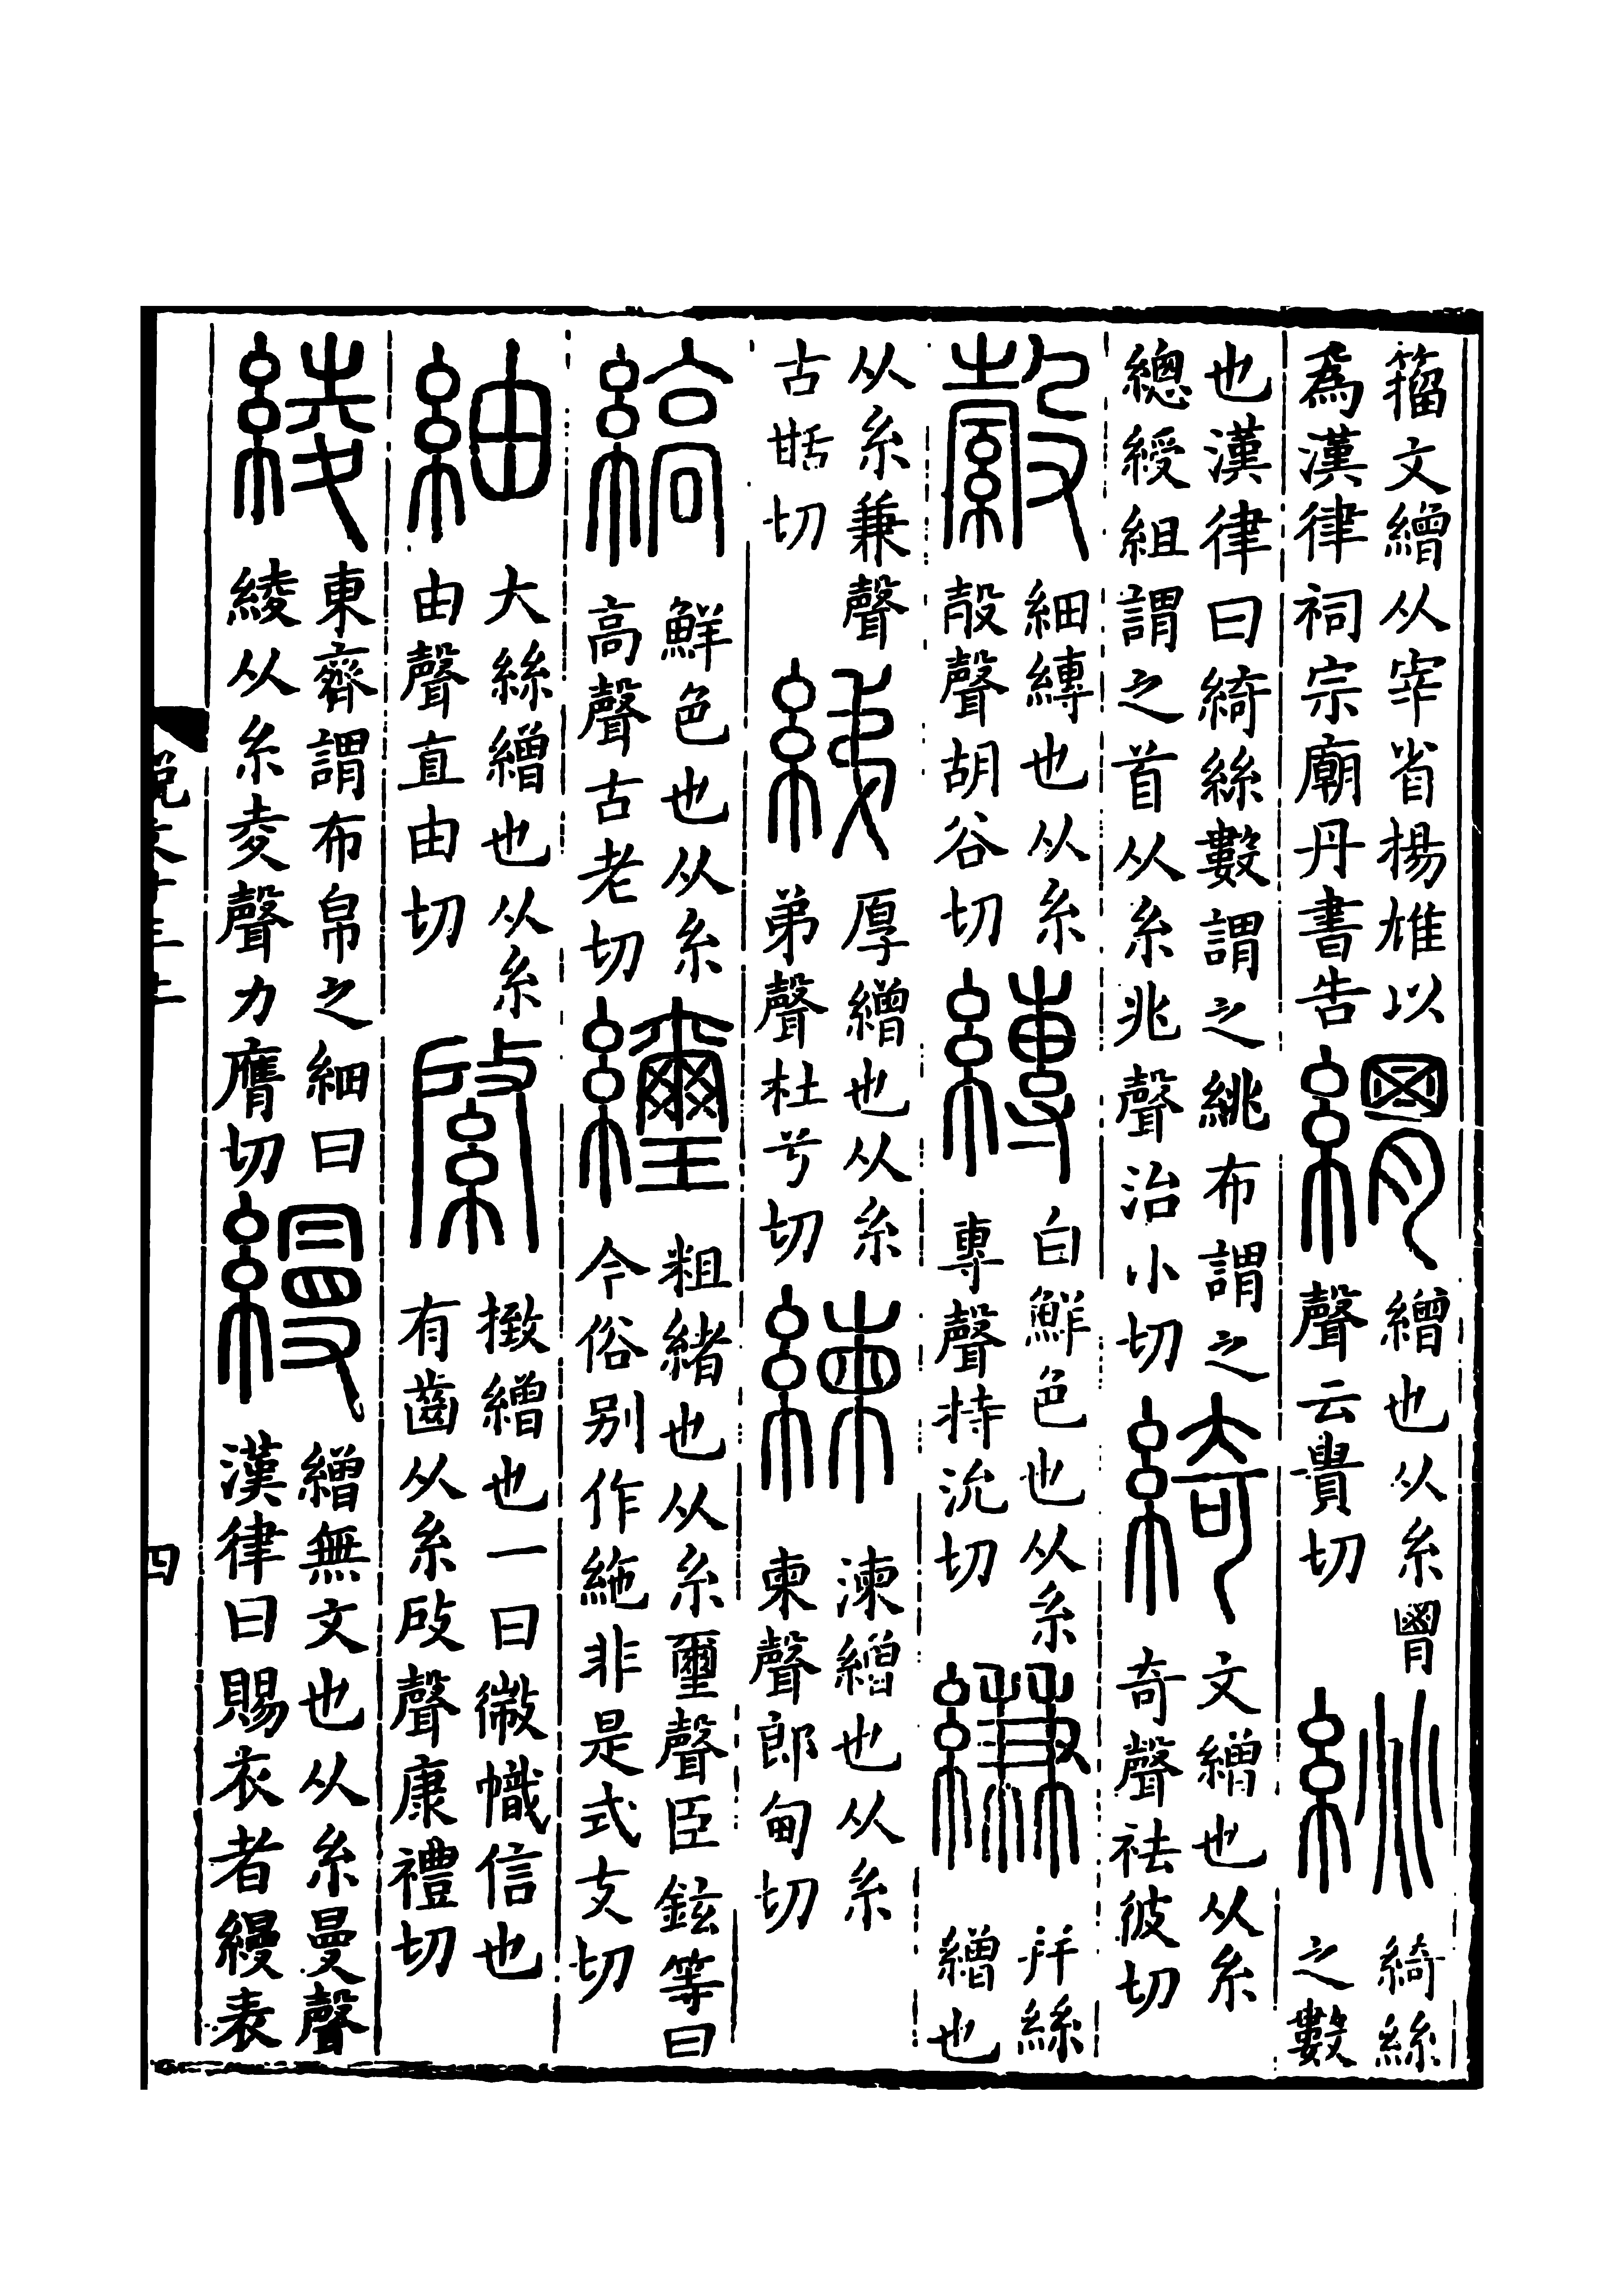 籀文繒从宰省揚雄以爲漢律祠宗廟丹書告緭繒也从糸胃聲云貴切絩綺絲之數
也漢律曰綺絲數謂之絩布謂之總綬組謂之首从糸兆聲治小切綺文繒也从糸奇聲袪彼切
縠細縳也从糸㱿聲胡谷切縳白鮮色也从糸專聲持沇切縑幷絲繒也
从糸兼聲古甛切綈厚繒也从糸弟聲杜兮切練湅繒也从糸柬聲郎甸切
縞鮮色也从糸高聲古老切䌳粗緒也从糸璽聲臣鉉等曰今俗别作絁非是式支切
紬大絲繒也从糸由聲直由切綮㨖繒也一曰微幟信也有齒从糸㪃聲康禮切
綾東齊謂布帛之細曰綾从糸夌聲力膺切縵繒無文也从糸曼聲漢律曰賜衣者縵表
說文十三上
四